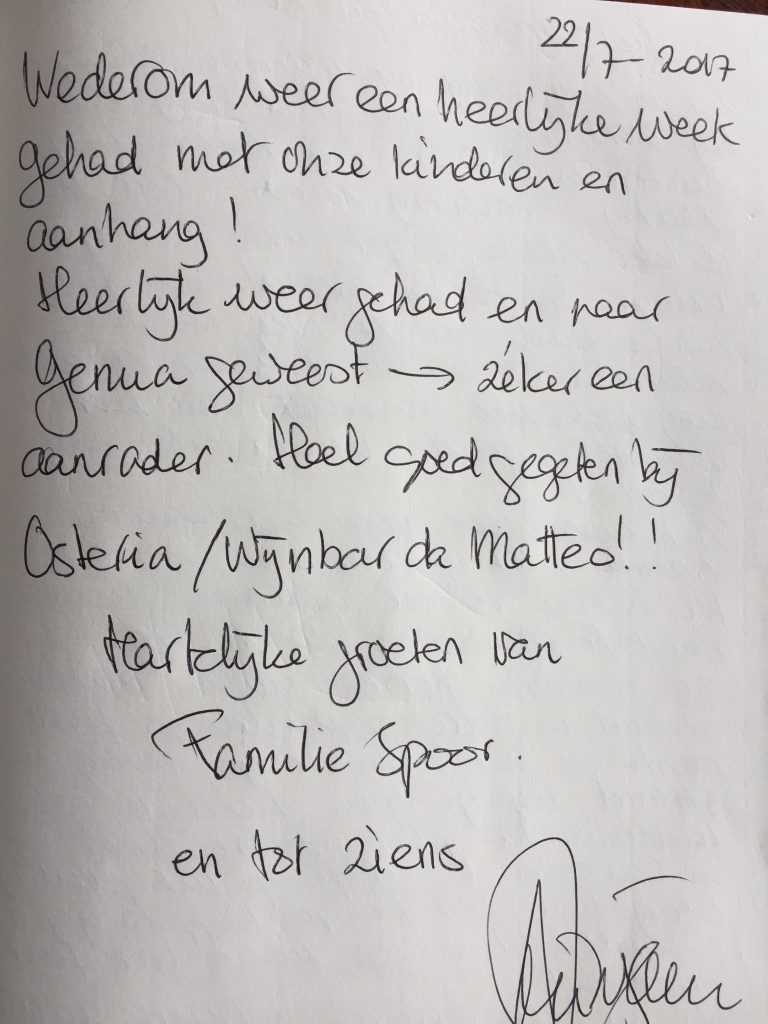 22/7-2017
Wederom weer een heerlijke week
gehad met onze kinderen en
aanhang!
Heerlijk weer gehad en naar
Genua geweest → zéker een
aanrader. Heel goed gegeten bij
Osteria/Wijnbar da Matteo!!
Hartelijke groeten van
Familie Spoor.
en tot ziens